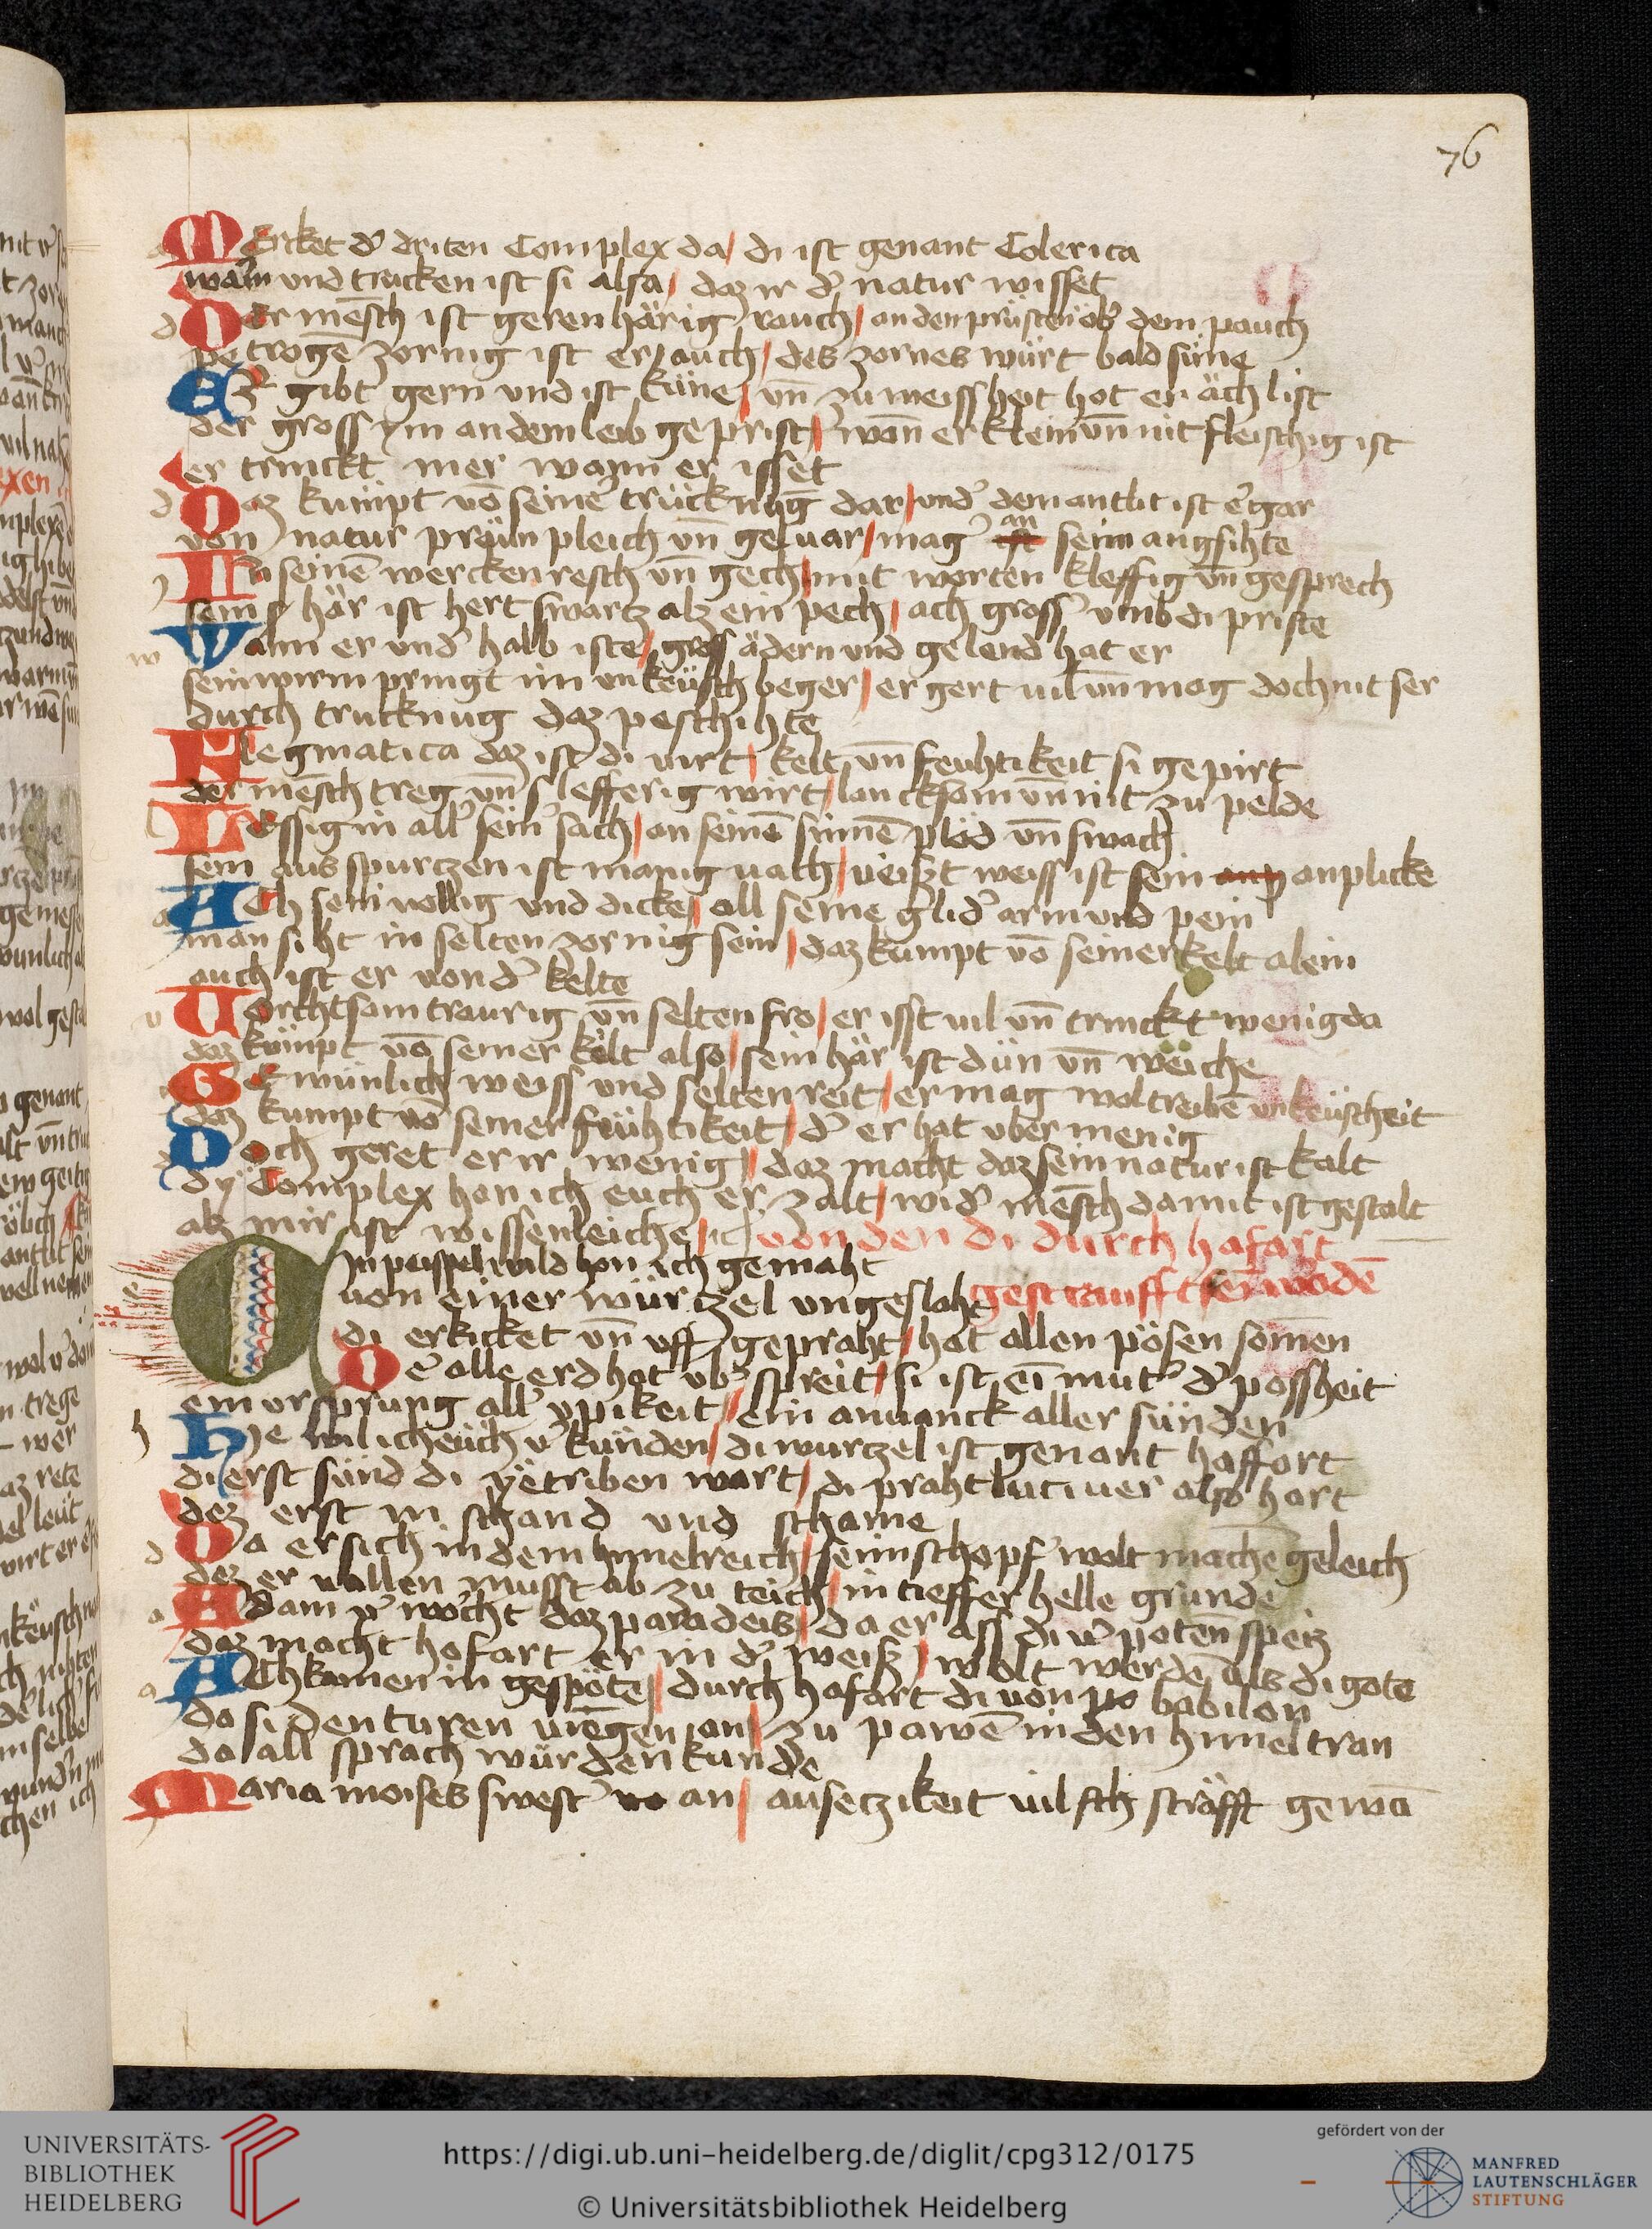 76
MErcket d' driten Complex da / di ist genant Colerica
warm und trucken ist si alsa / daz ir d' natur wisset
Der mēsch ist geren härig rauch / an den prüsten ob' dem pauch
petrogē zornig ist er auch / des zornes würt bald süne
Er gibt gern und ist küne / vn̄ zu weissheit hot er äch list
der gross ym an dem leib geprist / wōn er klein vn̄ nit fleischig ist
er trinckt mer wann er isset
Daz kümpt vō seine' trücknūg dar / und' dem antlit ist e' gar
von natur präun pleich vn̄ geuar / mag' an seim angsihte
In seinē wercken resch vn̄ gech / mit worten kleffig vn̄ gesprech
sein här ist hert swartz alz ein pech / ach gross vmb di priste
Wann er und' halb iste / gross ädern und gelend hat er
sein wirm pringt im unkeüsch beger / er gert uil vn̄ mag doch nit ser
durch trucknug daz peschihte
Flegmatica daz ist di uirt / kelt vn̄ feuhtikeit si gepirt
der mēsch treg vn̄ slefferig wirt / lancksam vn̄ nit zu pelde
Lessig in all' seim' sach / an seinē sinnē plöd vn̄ swach
sein aus spurczen ist manig uach / ueißt weiss ist sein anplicke
ACh sein uollig und dicke / all seine glid' arm und pein
man siht in selten zornig sein / daz kumpt vō seiner kelt alein
auch ist er von d' kelte
Uorchtsam traurig vn̄ selten fro / er isst uil vn̄ trinckt wenig da
daz kümpt vō seiner kelt also / sein här ist dün vn̄ weiche
Gewünlich weiss und selten reit / er mag wol treibē unkeüscheit
daz kumpt vō seiner früchtikeit / d' er hat uber menig
Doch geret er ir wenig / daz macht daz sein natur ist kalt
dÿ Complex han ich euch er zalt / wi d' mēsch da mit ist gestalt
alz mir ist wissenleiche
von den di durch hofart
gestraufft sein wodē
EIn peispel wild hon ich gemaht
von einer würczel ungeslaht
di erkicket vn̄ uff gepraht / hot allen pösen somen
De' alle erd hot vb' spreit / si ist eī mut' d' possheit
ein ursprung all' üpikeit / ein anuanck aller sünden
Hie wil ich eüch v' künden / di wurczel ist genant haffort
di erst sünd di ye triben wart / di praht luciuer also hart
dez erst in schand und schame
Da er sich in dem himelreich / seim schopf' wolt machē geleich
dez er uallen musst ab zu teich / in tieffer helle grunde
Adam v' worcht daz paradeis / da er ass di v' poten speiz
daz macht hofart er in d' weiß / wolt werdē als di gote
ACh kamen in gespöte / durch hofart di von babilon
do si den turen uiegen an / zu pawē in den himel tran
do all sprach würden kunde
Maria moises swest' an / ausetzikeit uil sch sträfft gewā
UNIVERSITÄTS-
BIBLIOTHEK
HEIDELBERG
https://digi.ub.uni-heidelberg.de/diglit/cpg312/0175
© Universitätsbibliothek Heidelberg
gefördert von der
MANFRED
LAUTENSCHLÄGER
STIFTUNG